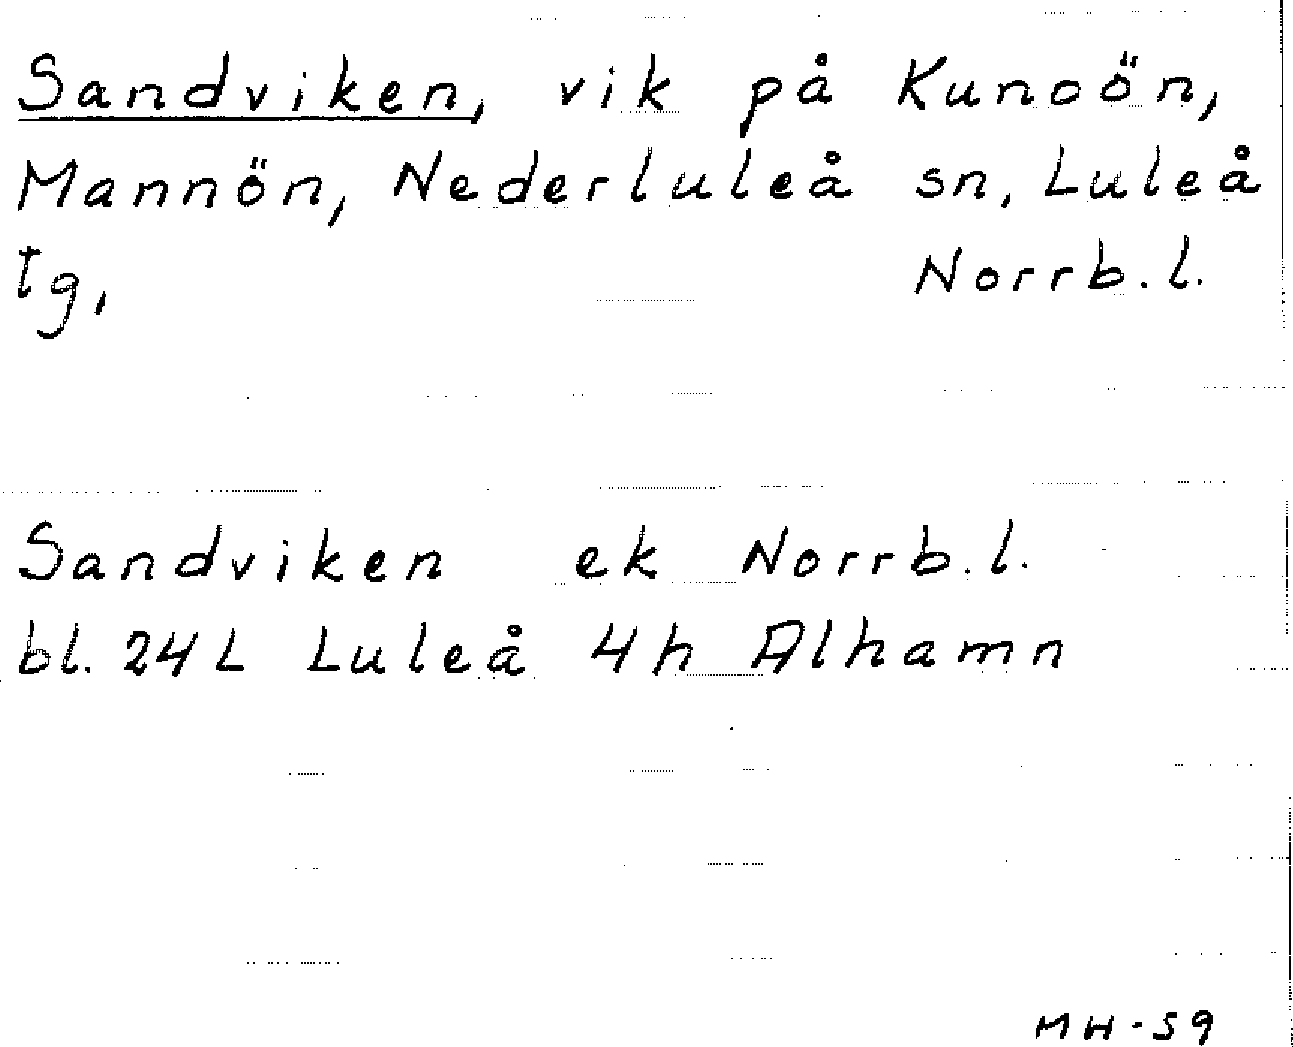 Sandviken, vik på Kunoön,
Mannön, Nederluleå sn, Luleå
tg, Norrb.l.
Sandviken ek Norrb.l.
bl. 24L Luleå 4h Alhamn
MH-59